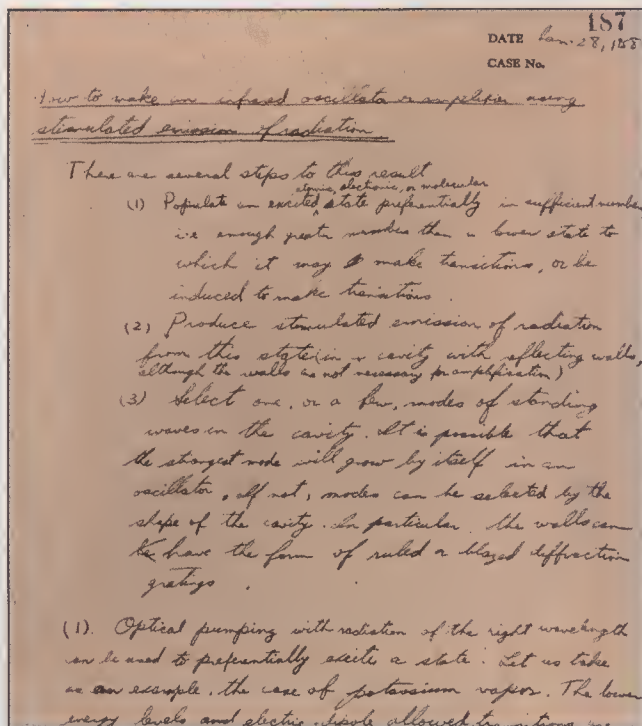 187
DATE Jan. 28, 1958
CASE No.
How to make an infrared oscillator or amplifier using
stimulated emission of radiation
There are several steps to this result
atomic, electronic, or molecular
(1) Populate an excited state preferentially in sufficient number
i.e enough greater number than a lower state to
which it may make transitions, or be
induced to make transitions.
(2) Produce stimulated emission of radiation
from this state (in a cavity with reflecting walls,
although the walls are not necessary for amplification)
(3) Select one, or a few, modes of standing
waves in the cavity. It is possible that
the strongest mode will grow by itself in an
oscillator. If not, modes can be selected by the
shape of the cavity. In particular, the walls can
have the form of ruled or blazed diffraction
gratings.
(1). Optical pumping with radiation of the right wavelength
can be used to preferentially excite a state. Let us take
as an example, the case of potassium vapor. The lower
energy levels and electric dipole allowed transitions are